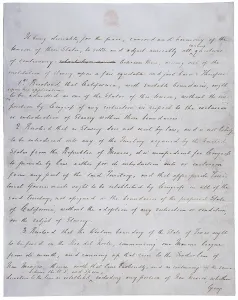 It being desirable, for the peace, concord and harmony of the
Union of these States, to settle and adjust amicably all
questions of controversy between them, arising out of the
institution of slavery upon a fair equitable and just basis: Therefore
1. Resolved that California, with suitable boundaries, ought
upon her application
to be admitted as one of the States of this Union, without the im-
position by Congress of any restriction in respect to the exclusion
or introduction of slavery within those boundaries.
2. Resolved that as Slavery does not exist by law, and is not likely
to be introduced into any of the territory acquired by the United
States from the Republic of Mexico, it is inexpedient for Congress
to provide by law either for its introduction into or exclusion
from any part of the said Territory; and that appropriate Terri-
torial Governments ought to be established by Congress in all of the
said territory, not assigned as the boundaries of the proposed State
of California, without the adoption of any restriction or condition
on the subject of Slavery.
3. Resolved that the Western boundary of the State of Texas ought
to be fixed on the Rio del Norte, commencing one marine league
from its mouth, and running up that river to the Southern line of
New Mexico; thence with that line Eastwardly, and so continuing in the same
direction to the line as established between the U.S. and Spain, excluding any portion of New Mexico, whether
lying